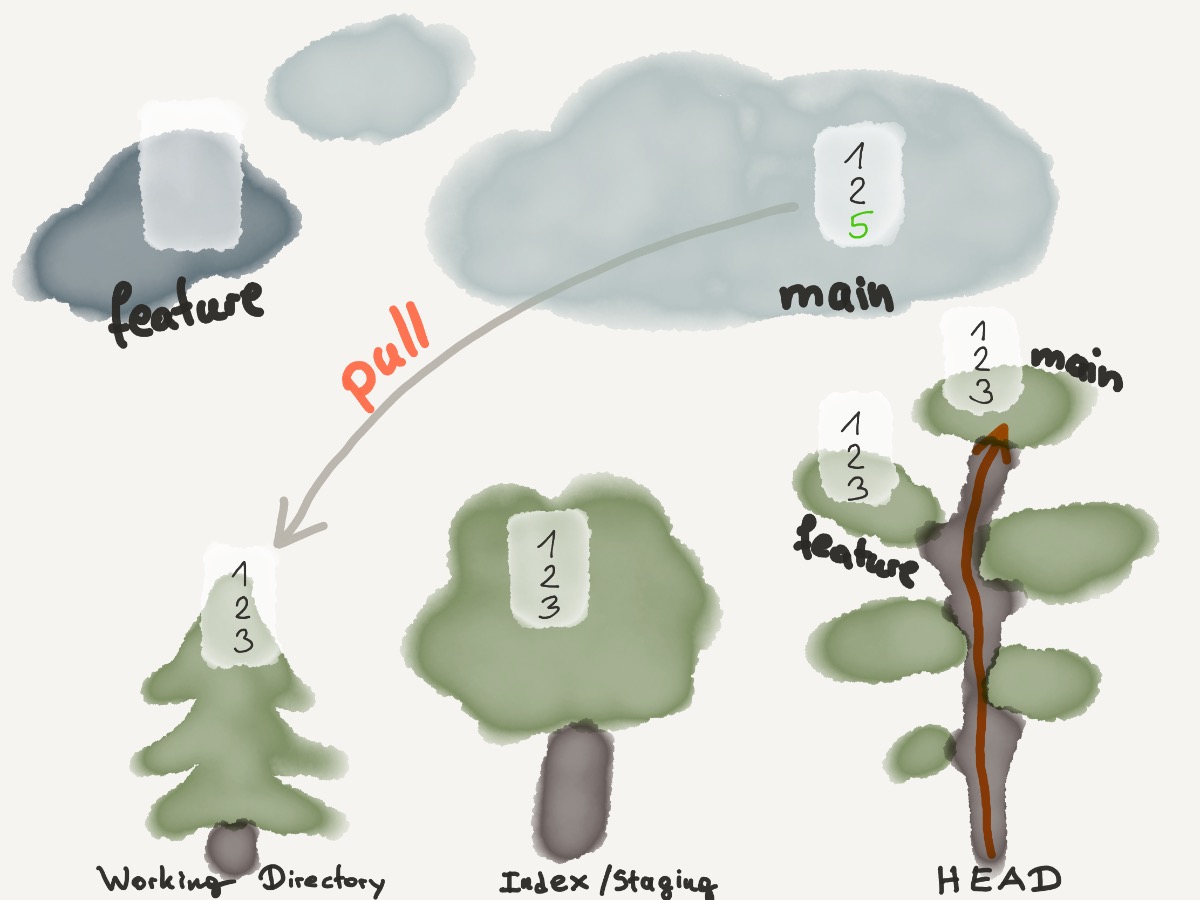 1
2
5
main
feature
pull
1
2
3
main
1
2
3
feature
1
2
3
1
2
3
Working Directory
Index/Staging
HEAD